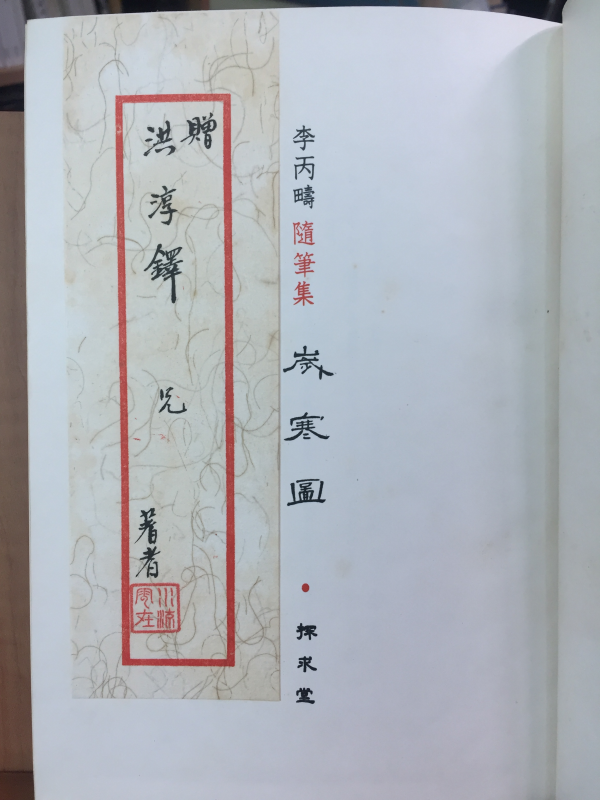 李丙疇 隨筆集 歲寒圖 • 探求堂
贈
洪淳鐸 兄
著者